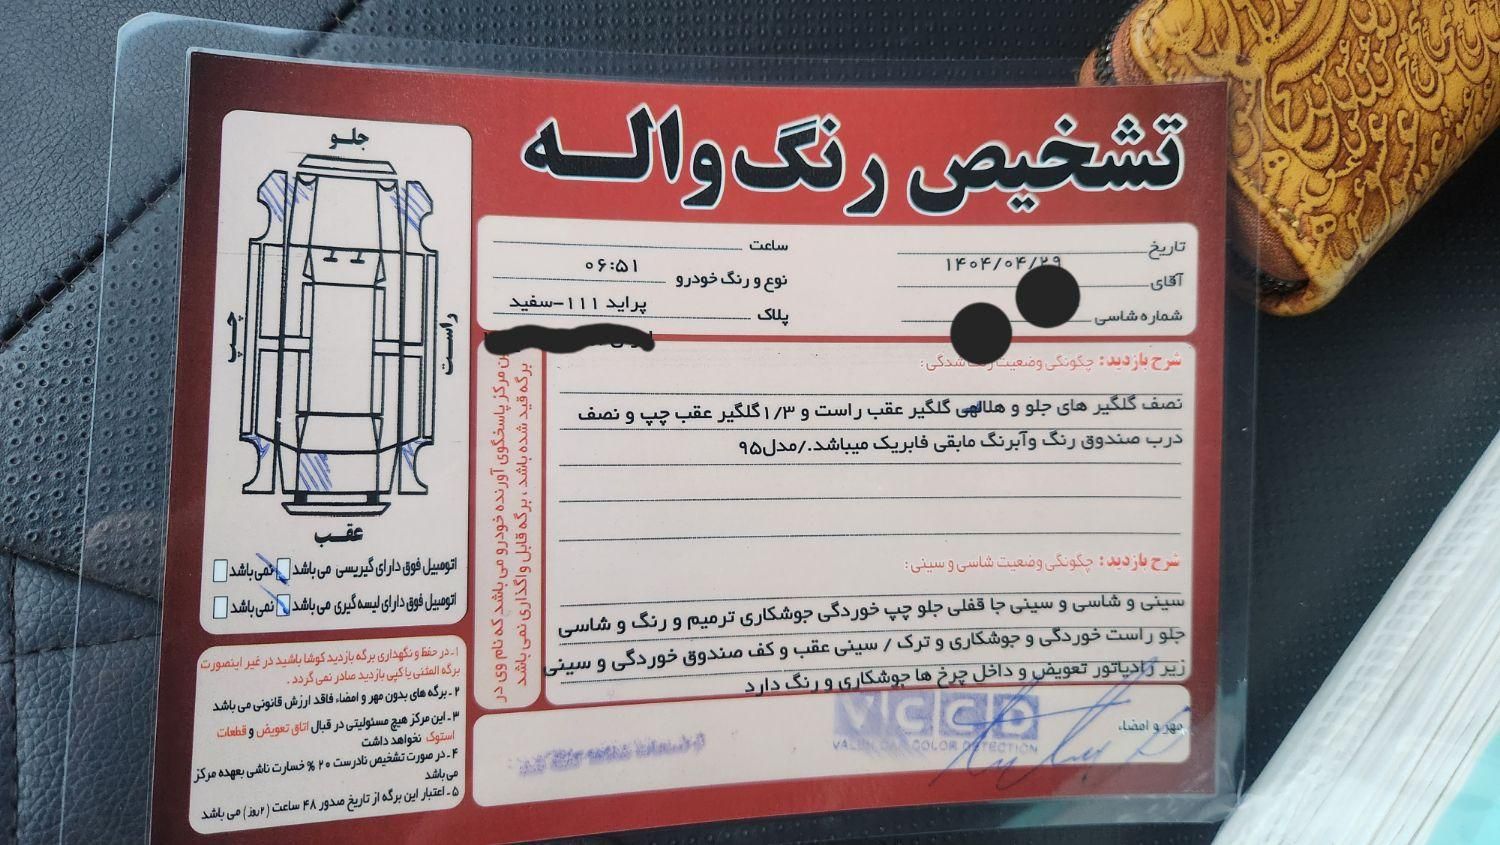 تشخیص رنگ واله
تاریخ
۱۴۰۴/۰۴/۲۹
آقای
شماره شاسی
ساعت
۰۶:۵۱
نوع و رنگ خودرو
پراید ۱۱۱-سفید
پلاک
جلو
چپ
راست
عقب
اتومبیل فوق دارای گیریسی می باشد نمی باشد
اتومبیل فوق دارای لیسه گیری می باشد نمی باشد
شرح بازدید: چگونگی وضعیت رنگ شدگی:
نصف گلگیر های جلو و هلالهی گلگیر عقب راست و ۱/۳گلگیر عقب چپ و نصف
درب صندوق رنگ وآبرنگ مابقی فابریک میباشد./مدل۹۵
شرح بازدید: چگونگی وضعیت شاسی و سینی:
سینی و شاسی و سینی جا قفلی جلو چپ خوردگی جوشکاری ترمیم و رنگ و شاسی
جلو راست خوردگی و جوشکاری و ترک / سینی عقب و کف صندوق خوردگی و سینی
زیر رادیاتور تعویض و داخل چرخ ها جوشکاری و رنگ دارد
مرکز پاسخگوی آورنده خودرو می باشد که نام وی در
برگه قید شده باشد ، برگه قابل واگذاری نمی باشد
۱-در حفظ و نگهداری برگه بازدید کوشا باشید در غیر اینصورت
برگه المثنی یا کپی بازدید صادر نمی گردد .
۲- برگه های بدون مهر و امضاء فاقد ارزش قانونی می باشد
۳- این مرکز هیچ مسئولیتی در قبال اتاق تعویض و قطعات
استوک نخواهد داشت
۴- در صورت تشخیص نادرست ۲۰ % خسارت ناشی بعهده مرکز
می باشد
۵- اعتبار این برگه از تاریخ صدور ۴۸ ساعت (۲روز) می باشد
مهر و امضاء:
VCCD
COLOR DETECTION